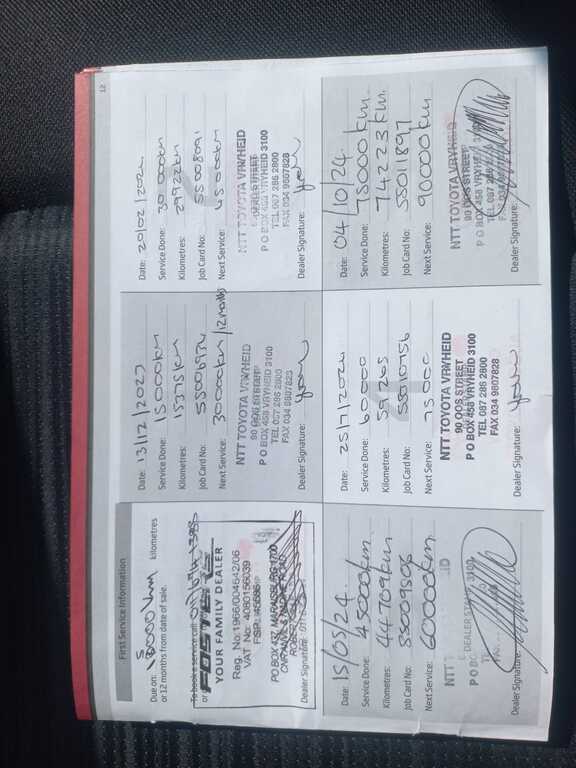 12
First Service Information
Due on: 15000km kilometres
or 12 months from date of sale.
To book a service call:
or
FOSTERS
YOUR FAMILY DEALER
Reg. No:1966/004642/06
VAT No: 4080156039
PO BOX 437, MARAISBURG 1700
Dealer Signature:
Date: 13/12/2023
Service Done: 15000km
Kilometres: 15375km
Job Card No: 55006974
Next Service: 30000km/12 months
NTT TOYOTA VRYHEID
90 OOS STREET
P O BOX 458 VRYHEID 3100
TEL 087 286 2800
FAX 034 9807828
Dealer Signature:
Date: 20/02/2024
Service Done: 30 000km
Kilometres: 29922km
Job Card No: 55008091
Next Service: 45000km
NTT TOYOTA VRYHEID
90 OOS STREET
P O BOX 458 VRYHEID 3100
TEL 087 286 2800
FAX 034 9807828
Dealer Signature:
Date: 15/05/24.
Service Done: 45000km.
Kilometres: 44709km.
Job Card No: 55009506
Next Service: 60000km.
NTT
P O BO
3100
Dealer Signature:
Date: 25/7/2024
Service Done: 60 000
Kilometres: 59265
Job Card No: 55010756
Next Service: 75 000
NTT TOYOTA VRYHEID
90 OOS STREET
P O BOX 458 VRYHEID 3100
TEL 087 286 2800
FAX 034 9807828
Dealer Signature:
Date: 04/10/24.
Service Done: 75000 km.
Kilometres: 74223 km.
Job Card No: 55011897
Next Service: 90000km
NTT TOYOTA VRYHEID
90 OOS STREET
P O BOX 458 VRYHEID 3100
TEL 087 286 2800
FAX 034 9807828
Dealer Signature: